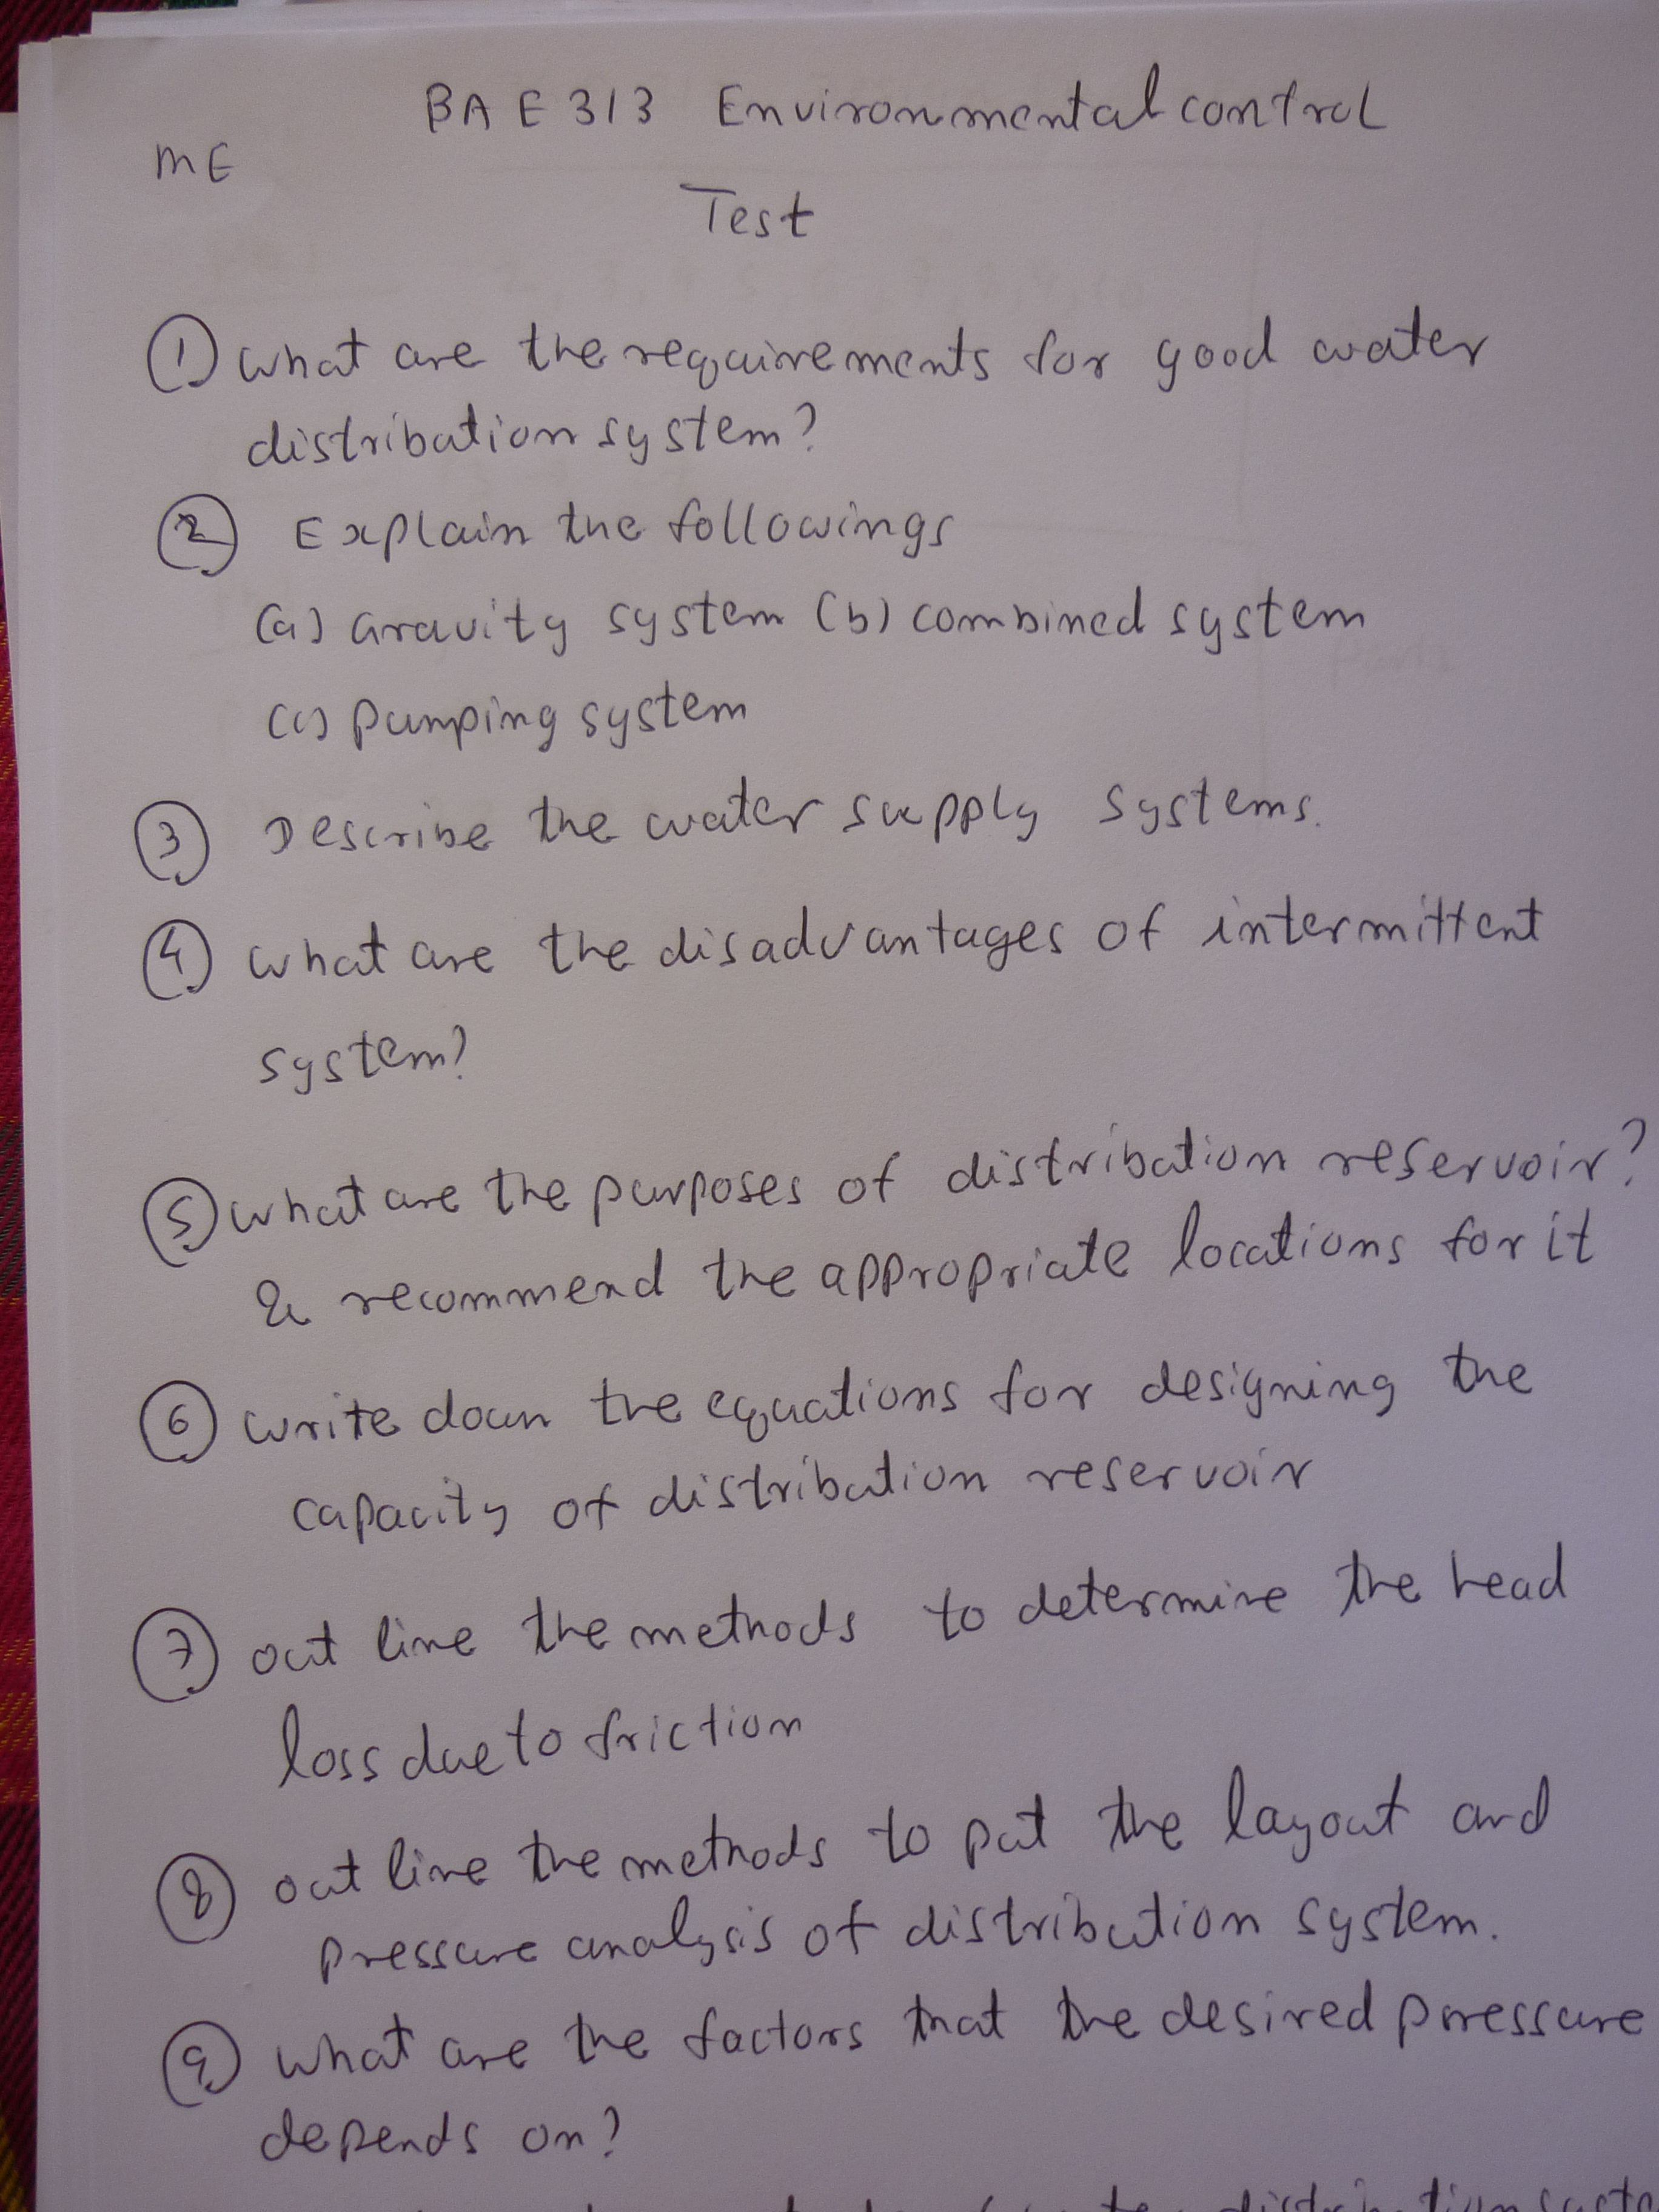 BAE 313 Environmental control
ME
Test
① what are the requirements for good water
distribution system?
② Explain the followings
(a) Gravity system (b) combined system
(c) pumping system
③ Describe the water supply systems.
④ what are the disadvantages of intermittent
system?
⑤ what are the purposes of distribution reservoir?
& recommend the appropriate locations for it
⑥ write down the equations for designing the
capacity of distribution reservoir
⑦ out line the methods to determine the head
loss due to friction
⑧ out line the methods to put the layout and
pressure analysis of distribution system.
⑨ what are the factors that the desired pressure
depends on?
distribution